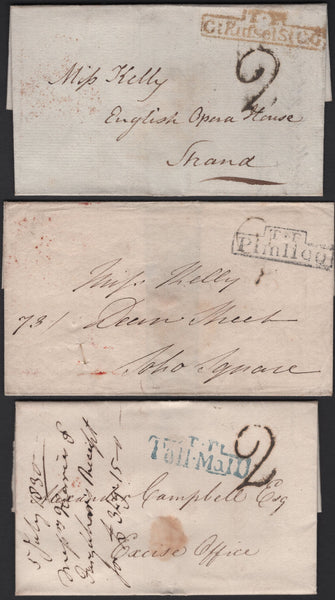 T.P
Gt Russel St C.G
2
Miss Kelly
English Opera House
Strand
T.P
Pimlico
Miss Kelly
73 Dean Street
Soho Square
T.P
Pall-Mall
2
Alexander Campbell Esq
Excise Office
5 July 1830
Receipt
for